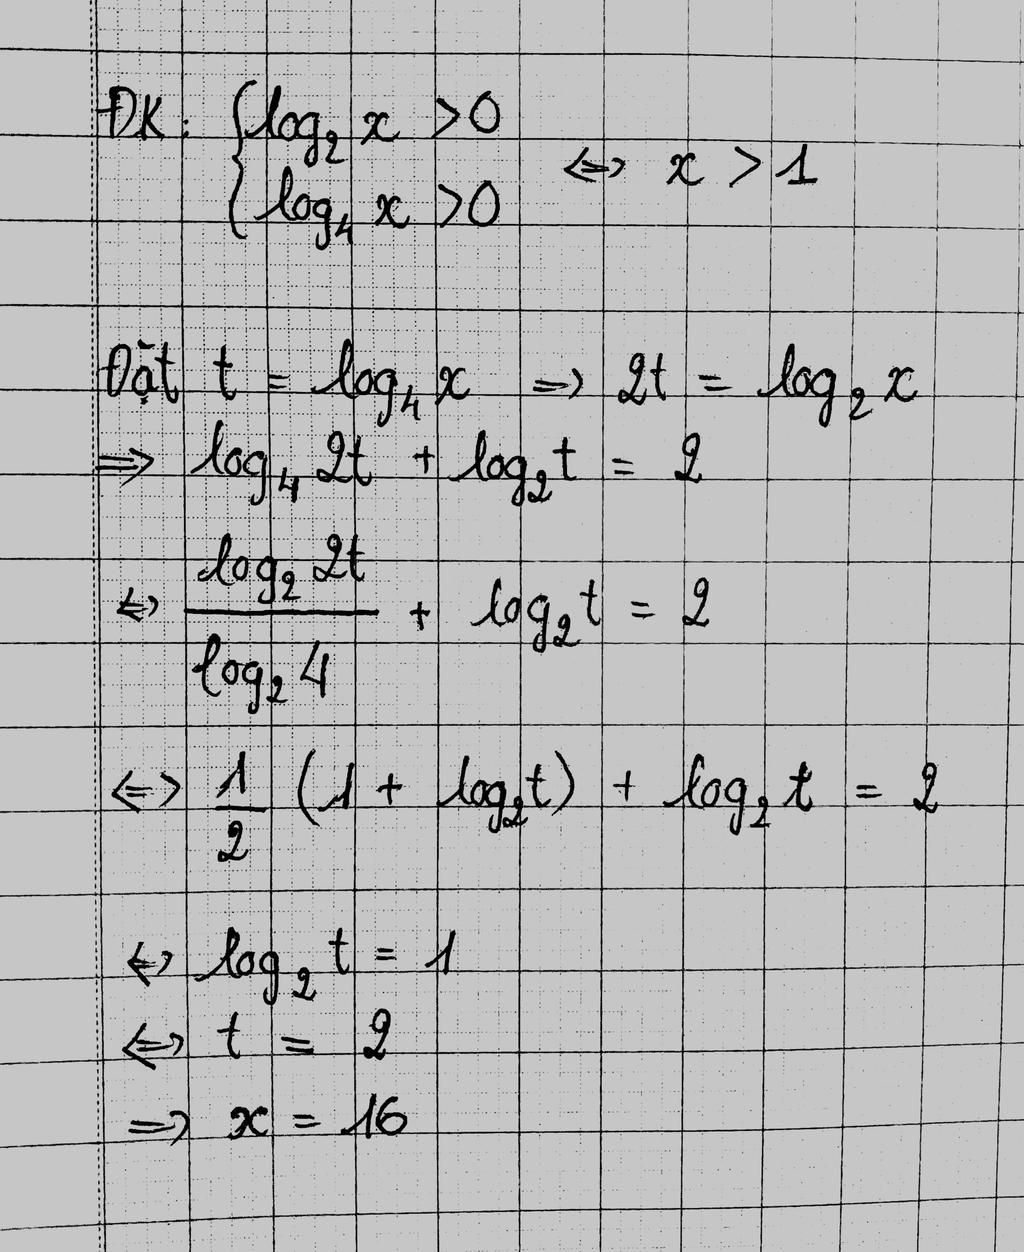 ĐK: { log₂ x > 0
{ log₄ x > 0 ⇔ x > 1
Đặt t = log₄ x ⇒ 2t = log₂ x
⇒ log₄ 2t + log₂ t = 2
⇔ log₂ 2t / log₂ 4 + log₂ t = 2
⇔ 1/2 (1 + log₂ t) + log₂ t = 2
⇔ log₂ t = 1
⇔ t = 2
⇒ x = 16